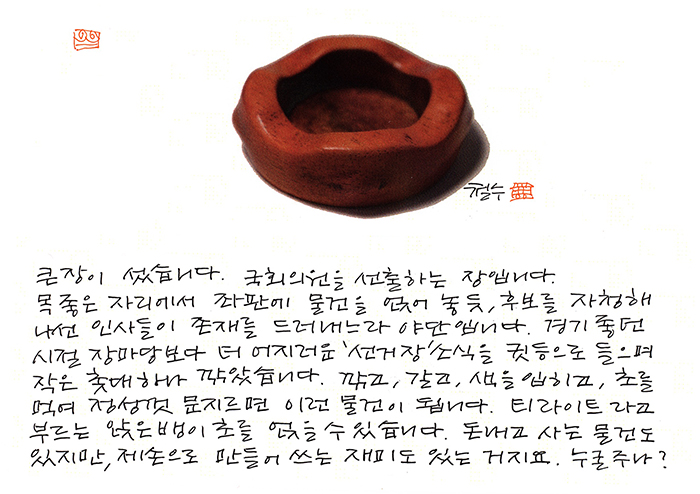 철수
큰장이 섰습니다. 국회의원을 선출하는 장입니다.
목 좋은 자리에서 좌판에 물건을 얹어 놓듯, 후보를 자청해
나선 인사들이 존재를 드러내느라 야단입니다. 경기 좋던
시절 장마당보다 더 어지러운 '선거장' 소식을 귓등으로 들으며
작은 촛대 하나 깎았습니다. 깎고, 갈고, 색을 입히고, 초를
먹여 정성껏 문지르면 이런 물건이 됩니다. 티라이트라고
부르는 앉은뱅이 초를 얹을 수 있습니다. 돈 내고 사는 물건도
있지만, 제 손으로 만들어 쓰는 재미도 있는 거지요. 누굴 주나?